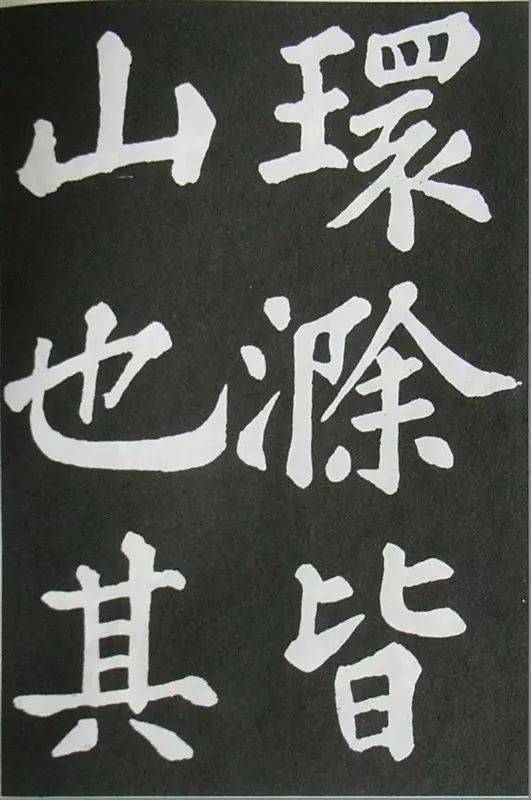 環滁皆
山也其